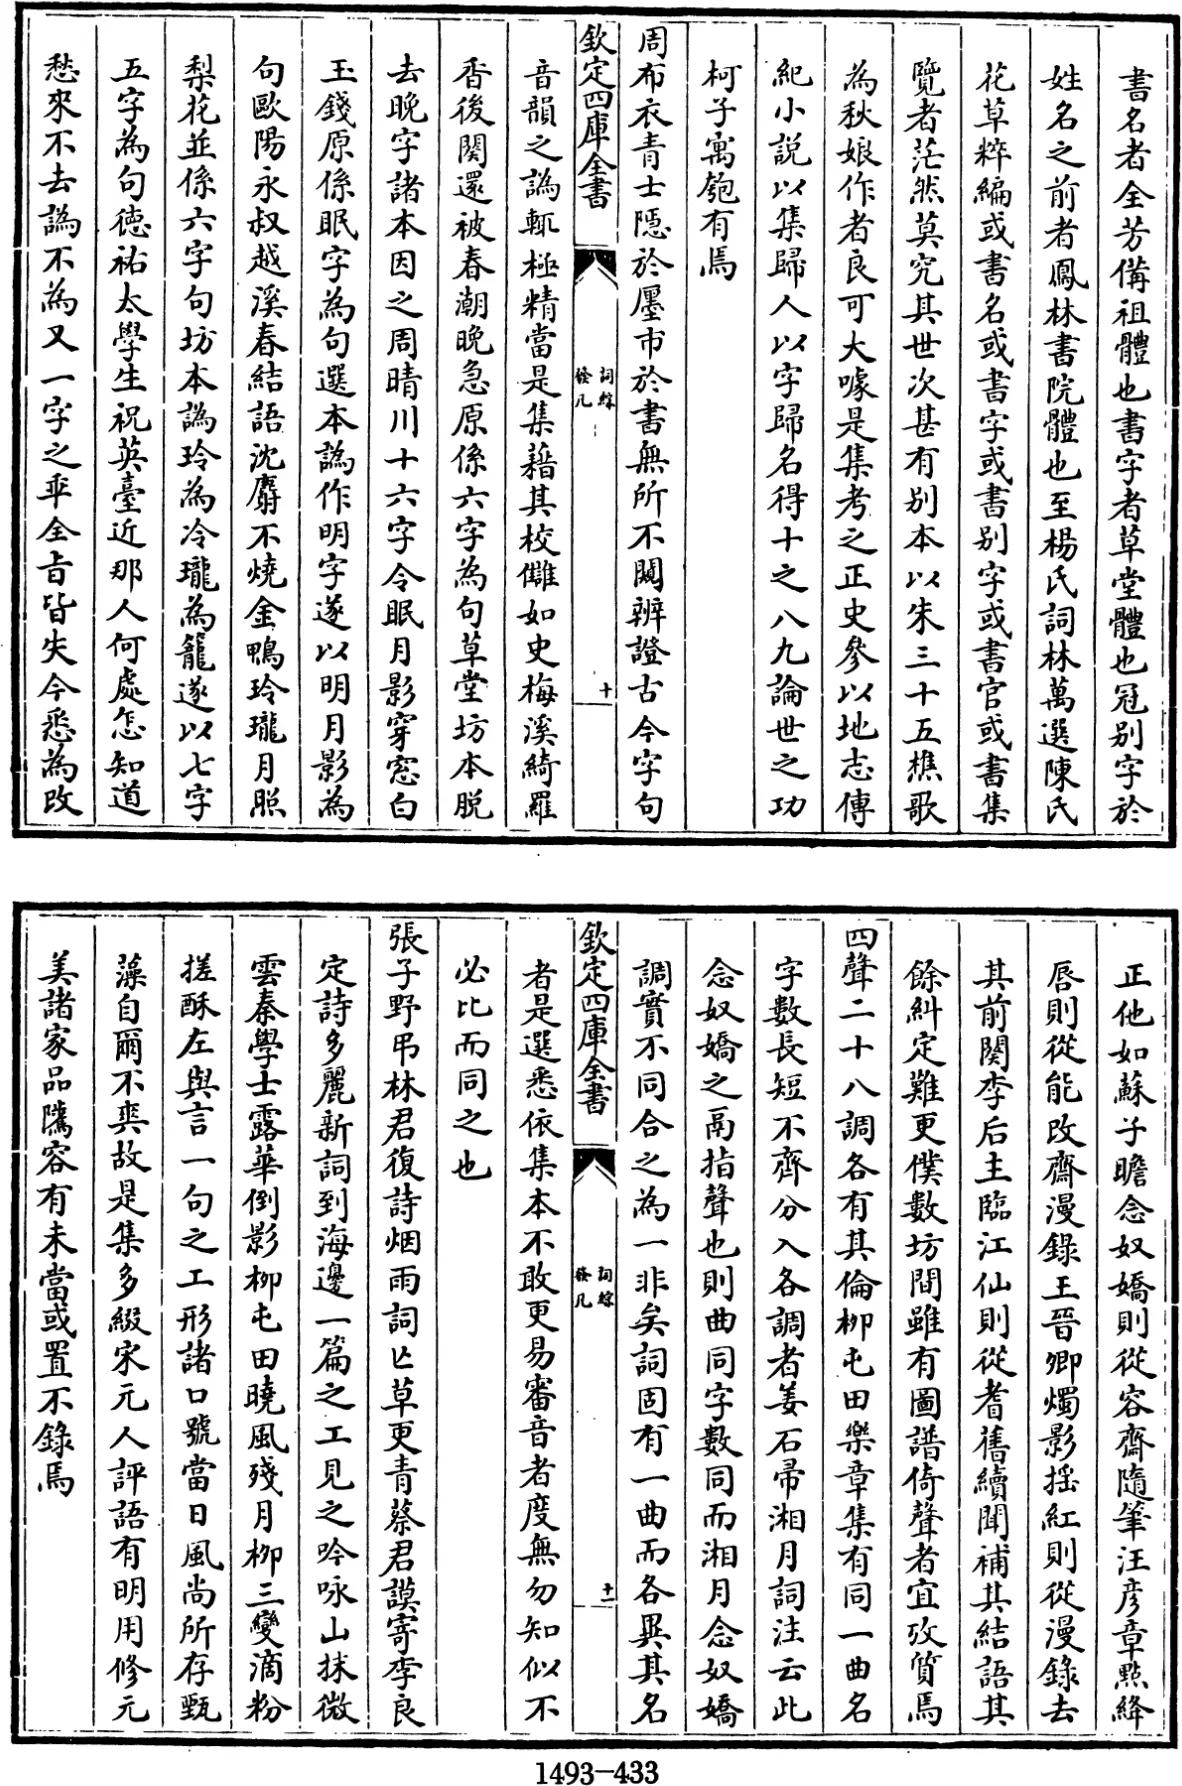 書名者全芳備祖體也書字者草堂體也冠别字於
姓名之前者鳳林書院體也至楊氏詞林萬選陳氏
花草粹編或書名或書字或書别字或書官或書集
覽者茫然莫究其世次甚有别本以朱三十五樵歌
為秋娘作者良可大噱是集考之正史參以地志傳
紀小説以集歸人以字歸名得十之八九論世之功
柯子寓匏有焉
周布衣青士隱於廛市於書無所不闚辨證古今字句
欽定四庫全書
詞綜
發凡
十
音韻之譌輒極精當是集藉其校讎如史梅溪綺羅
香後闋還被春潮晚急原係六字為句草堂坊本脱
去晚字諸本因之周晴川十六字令眠月影穿窓白
玉錢原係眠字為句選本譌作明字遂以明月影為
句歐陽永叔越溪春結語沈麝不燒金鴨玲瓏月照
梨花並係六字句坊本譌玲為冷瓏為籠遂以七字
五字為句徳祐太學生祝英臺近那人何處怎知道
愁來不去譌不為又一字之乖全旨皆失今悉為改
正他如蘇子瞻念奴嬌則從容齋隨筆汪彦章㸃絳
唇則從能改齋漫錄王晉卿燭影揺紅則從漫錄去
其前闋李后主臨江仙則從耆舊續聞補其結語其
餘糾定難更僕數坊間雖有圖譜倚聲者宜攷質焉
四聲二十八調各有其倫柳屯田樂章集有同一曲名
字數長短不齊分入各調者姜石帚湘月詞注云此
念奴嬌之鬲指聲也則曲同字數同而湘月念奴嬌
調實不同合之為一非矣詞固有一曲而各異其名
欽定四庫全書
詞綜
發凡
十一
者是選悉依集本不敢更易審音者度無勿知似不
必比而同之也
張子野弔林君復詩烟雨詞亡草更青蔡君謨寄李良
定詩多麗新詞到海邊一篇之工見之吟咏山抹微
雲秦學士露華倒影柳屯田曉風殘月柳三變滴粉
搓酥左與言一句之工形諸口號當日風尚所存甄
藻自爾不爽故是集多綴宋元人評語有明用修元
美諸家品隲容有未當或置不錄焉
1493-433